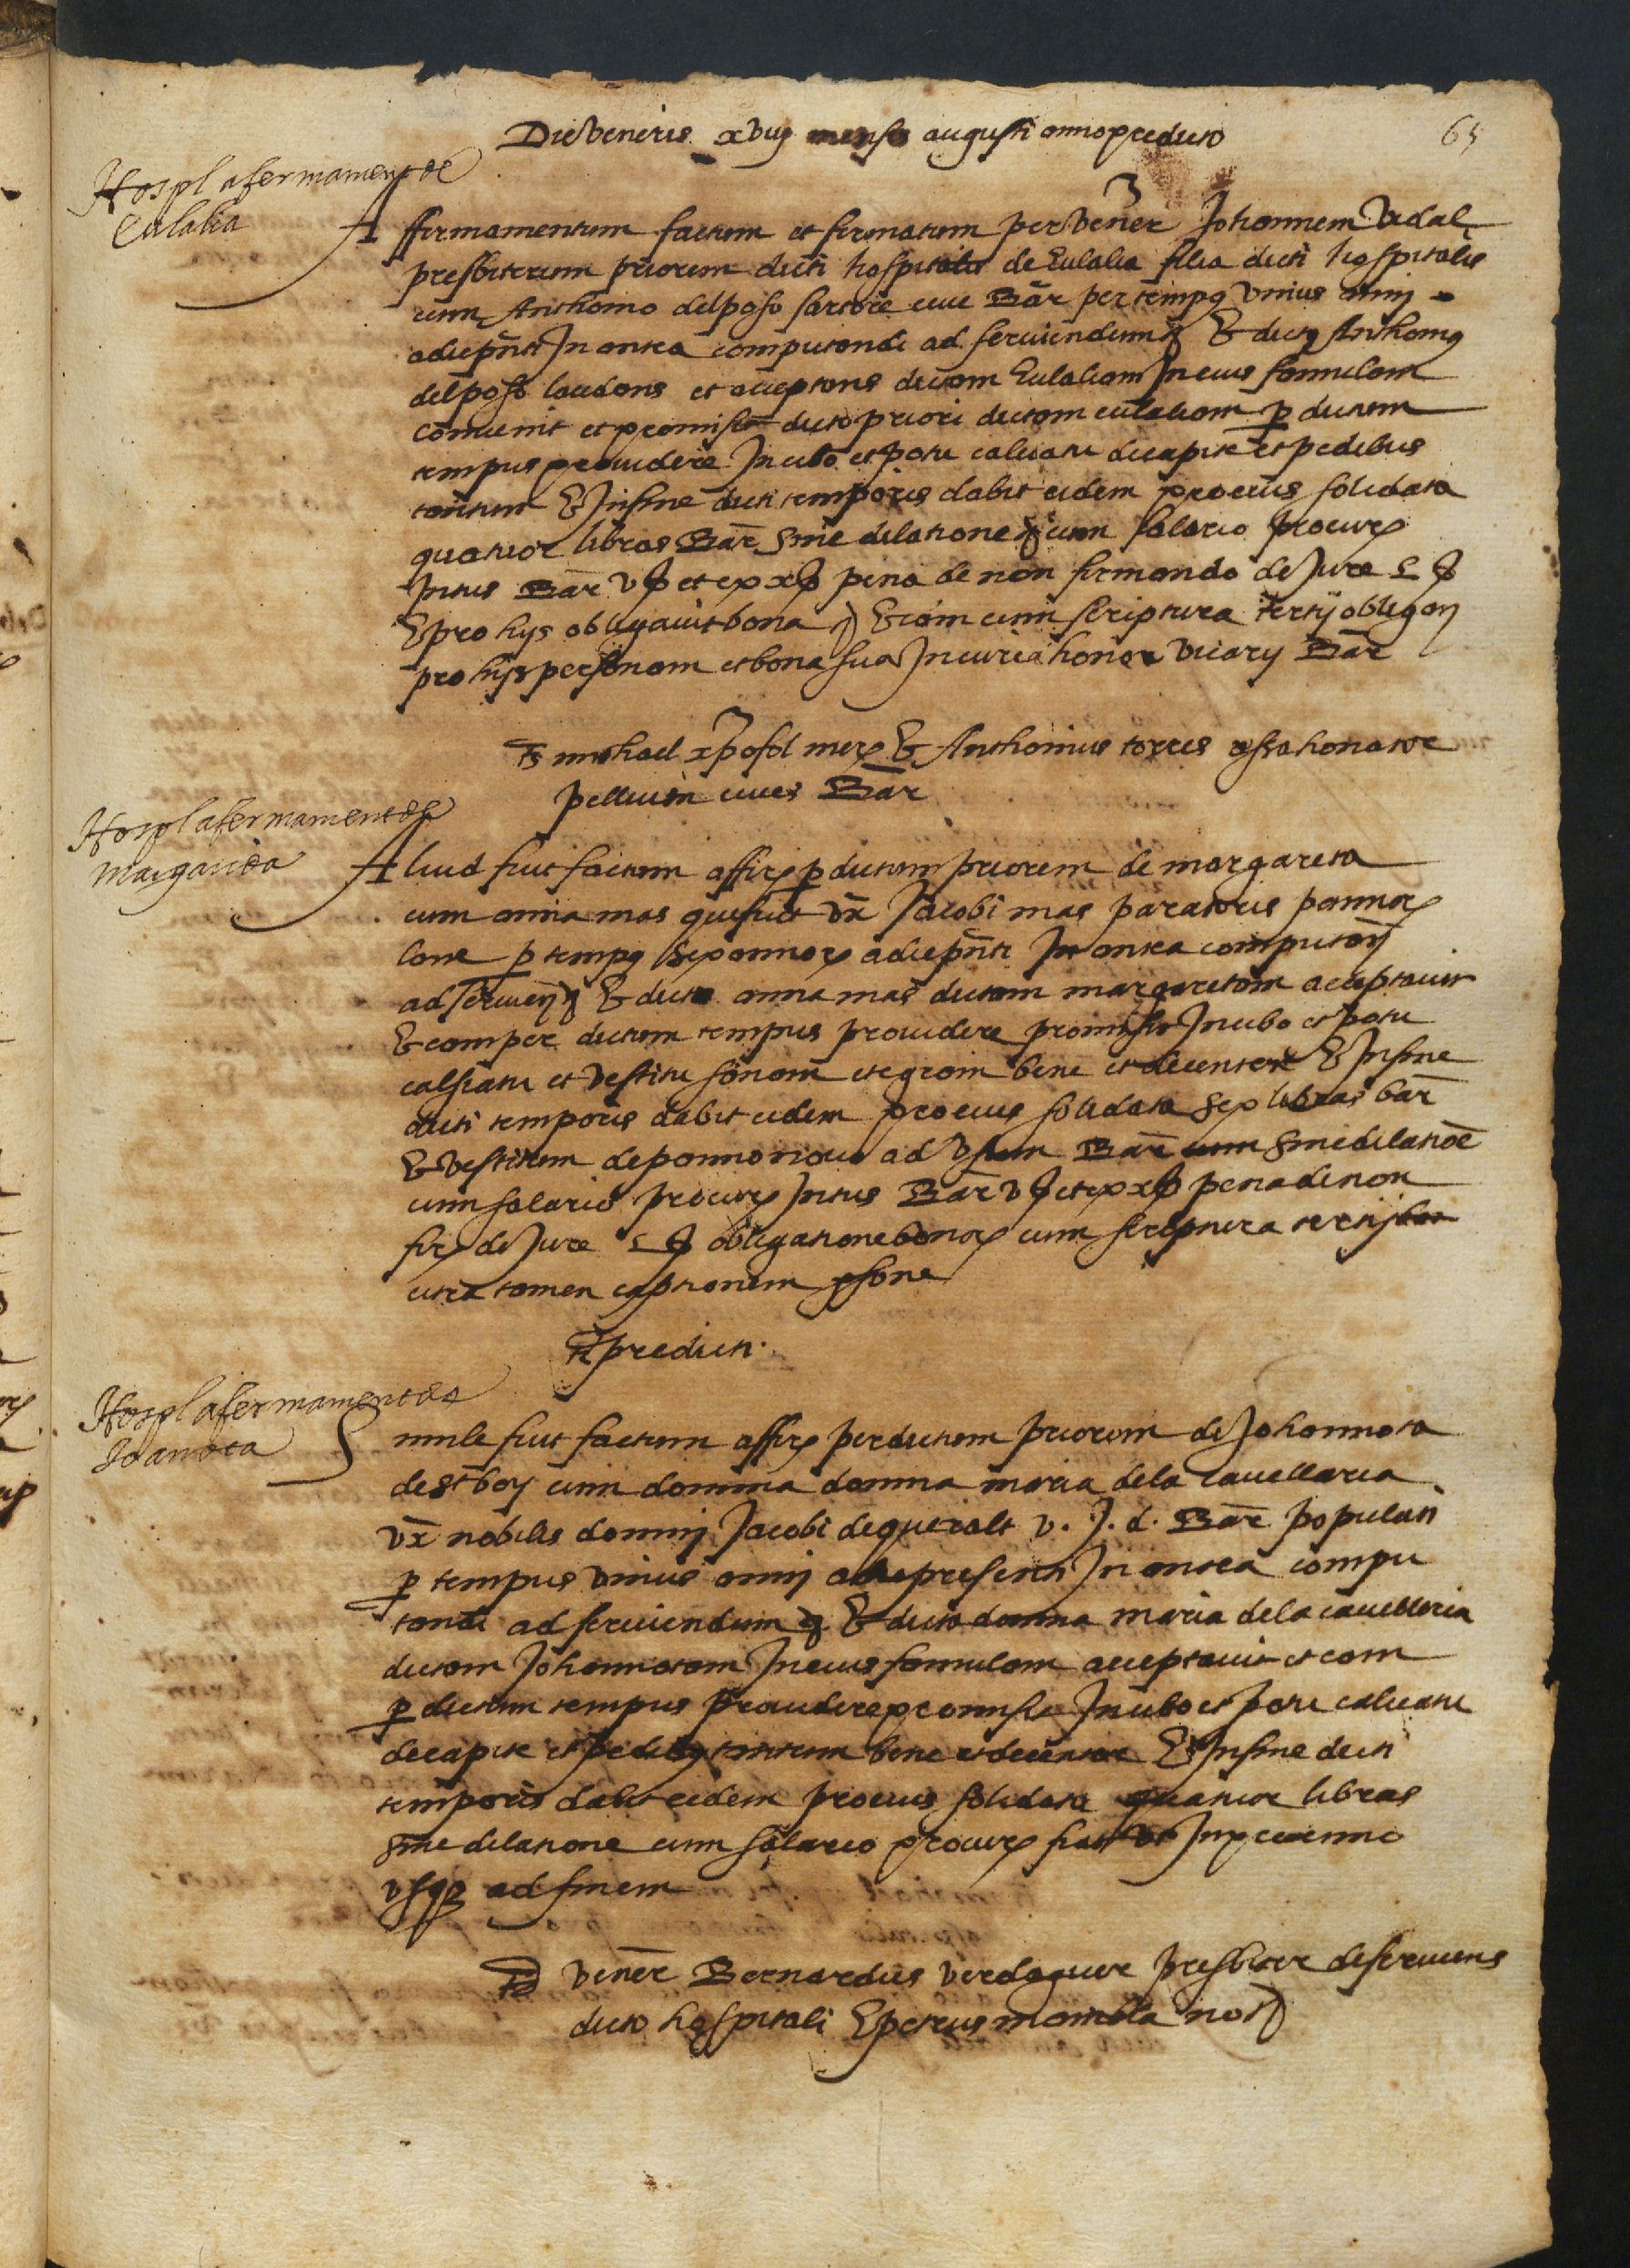 Die veneris xviij mensis augusti anno predicto
65
Hospl afermament de
Eulalia
Affirmamentum factum et firmatum per vener Johannem Vidal
presbiterum priorem dicti hospitalis de Eulalia filia dicti hospitalis
cum Anthonio del poso sartore cive Bar per tempus unius anni
a die pnti In antea computandi ad serviendum Et dictus Anthonius
del poso laudans et acceptans dictam Eulaliam In eius famulam
convenit et promisit dicto priori dictam eulaliam p dictum
tempus providere In cibo et potu calciatu de capite et pedibus
tantum Et In fine dicti temporis dabit eidem pro eius solidata
quatuor libras Bar sine dilatione cum salario procur
Intus Bar v s et ex x s pena de non firmando de Jure L s
Et pro hys obligavit bona Etiam cum scriptura tertij obligan
pro hijs personam et bona sua In curia honor vicarij Bar
ts michael xpofol mer Et Anthonius torres assahonator
pellium cives Bar
Hospl afermament de
Margarida
Aliud fuit factum affir p dictum priorem de margareta
cum anna mas que fuit ux Jacobi mas paratoris pannor
lane p tempus sex annor a die pnti In antea computan
ad servien Et dicta anna mas dictam margaretam acceptavit
Et eam per dictum tempus providere promisit In cibo et potu
calsiatu et vestitu sanam et egram bene et decenter Et In fine
dicti temporis dabit eidem pro eius solidata sex libras bar
Et vestitum de panno novo ad usum Bar cum sine dilatioe
cum salario procur Intus Bar v s et ex x s pena de non
fir de Jure L s obligatione bonor cum scriptura tertij
citra tamen captionem psone
ts predicti
Hospl afermament de
Joanota
Simile fuit factum affir per dictum priorem de Johannota
de st boy cum domina domna maria de la cavelleria
ux nobilis domnj Jacobi de queralt v. J. d. Bar populati
p tempus unius annj a die presenti In antea compu
tandi ad serviendum Et dicta domna maria de la cavelleria
dictam Johannotam In eius famulam acceptavit et eam
p dictum tempus providere promisit In cibo et potu calciatu
de capite et pedibus tantum bene et decenter Et In fine dicti
temporis dabit eidem pro eius solidata quatuor libras
sine dilatione cum salario procur fiat ut In proximo
usque ad finem
ts vener Bernardus verdaguer presbiter deserviens
dicto hospitali Et petrus mambla not